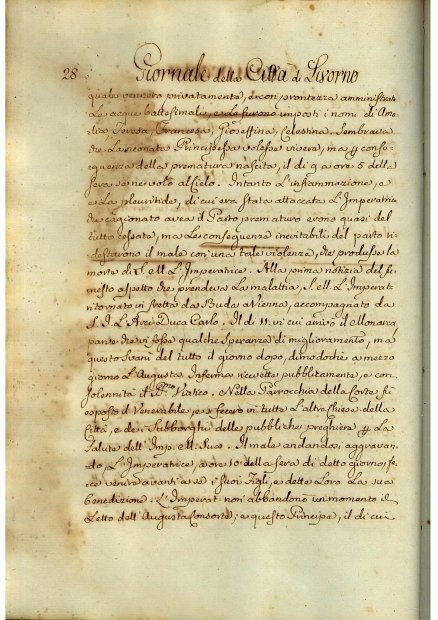 28 Giornale della Città di Livorno
quale vennero privatamente, e con prontezza amministrate
Le acque battesimali, e Le furono imposti i nomi di Ame-
lia, Teresa, Francesca, Gioseffina, Celestina. Sembrava
che La neonata Principessa volesse vivere, ma p conse-
quenza della prematura nascita, il dì 9 a ore 5 della
sera se ne volò al Cielo. Intanto L'infiammazione, e
e La pleuritide, di cui era stata attaccata L'Imperatrice
che cagionato avea il Parto prematuro erono quasi del
tutto cessate, ma Le conseguenze inevitabili del parto ri-
destarono il male con una tale violenza, che produsse la
morte di S. M. L'Imperatrice. Alla prima notizia del fu-
nesto aspetto che prendeva La malattia, S. M. L'Imperat:
ritornato in fretta da Buda a Vienna, accompagnato da
S. A. I. L'Arci Duca Carlo. Il dì 11 in cui arrivò il Monarca
parve che vi fosse qualche speranza di miglioramento, ma
questo svanì del tutto il giorno dopo, dimodoche a mezzo
giorno L'Augusta Inferma ricevette pubblicamente, e con
solennità il SSmo Viatico. Nella Parrocchia della Corte fù
esposto il Venerabile, e si fecero in tutte L'altre Chiese della
Città, e de' Subborghi delle pubbliche preghiere p La
salute dell'Imp. M. Sua. Il male andando, aggravan-
do, L'Imperatrice, a ore 10 della sera di detto giorno, fe-
ce venire avanti a se i suoi Figli, e dette Loro La sua
benedizione. L'Imperat: non abbandonò un momento il
Letto dell'Augusta Consorte; e questo Principe, il di cui